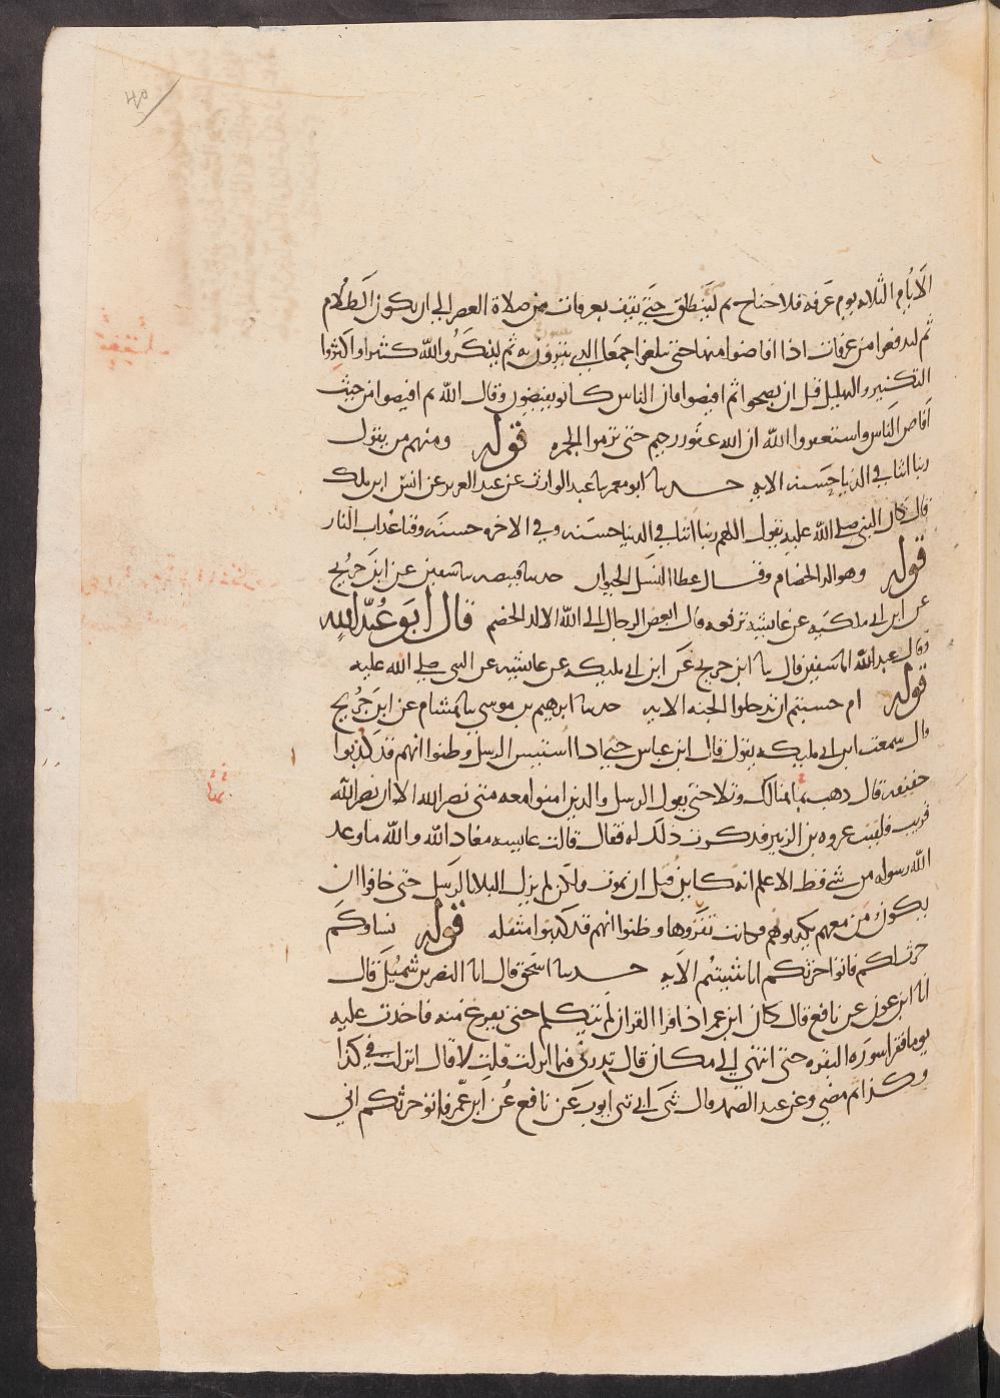 الايام الثلاثه يوم عرفه فلا جناح ثم لينطلق حتى يقف بعرفات من صلاة العصر الى ان يكون الظلام
ثم ليدفعوا من عرفات اذا افاضوا منها حتى يبلغوا جمعا الذي يتبرز به ثم ليذكروا الله كثيرا واكثروا
التكبير والتهليل قبل ان يصبحوا ثم افيضوا فان الناس كانوا يفيضون وقال الله ثم افيضوا من حيث
افاض الناس واستغفروا الله ان الله غفور رحيم حتى ترموا الجمره قوله ومنهم من يقول
ربنا اتنا في الدنيا حسنه الايه حدثنا ابو معمر نا عبد الوارث عن عبد العزيز عن انس ابن ملك
قال كان النبي صلى الله عليه يقول اللهم ربنا اتنا في الدنيا حسنه وفي الاخره حسنه وقنا عذاب النار
قوله وهو الد الخصام وقال عطا النسل الحيوان حدثنا قبيصه نا سفين عن ابن جريج
عن ابن ابي مليكه عن عايشه ترفعه قال ابغض الرجال الى الله الالد الخصم قال ابو عبد الله
وقال عبد الله انا سفين قال نا ابن جريج عن ابن ابي مليكه عن عايشه عن النبي صلى الله عليه
قوله ام حسبتم ان تدخلوا الجنه الايه حدثنا ابرهيم بن موسى نا هشام عن ابن جريج
قال سمعت ابن ابي مليكه يقول قال ابن عباس حتى اذا استيس الرسل وظنوا انهم قد كذبوا
خفيفه قال ذهب بها هنالك وتلا حتى يقول الرسل والذين امنوا معه متى نصر الله الا ان نصر الله
قريب فلقيت عروه بن الزبير فذكرت ذلك له فقال قالت عايشه معاذ الله والله ما وعد
الله رسوله من شي قط الا علم انه كاين قبل ان يموت ولكن لم يزل البلا بالرسل حتى خافوا ان
يكون من معهم يكذبوهم فكانت تقروها وظنوا انهم قد كذبوا مثقله قوله نساوكم
حرث لكم فاتوا حرثكم انا شيتم الايه حدثنا اسحق قال انا النضر بن شميل قال
انا ابن عون عن نافع قال كان ابن عمر اذا قرا القران لم يتكلم حتى يفرغ منه فاخذت عليه
يوما فقرا سورة البقره حتى انتهى الى مكان قال تدري فيما انزلت قلت لا قال انزلت في كذا
وكذا ثم مضى وعن عبد الصمد قال ثنى ابي ثنى ايوب عن نافع عن ابن عمر فاتوا حرثكم انى